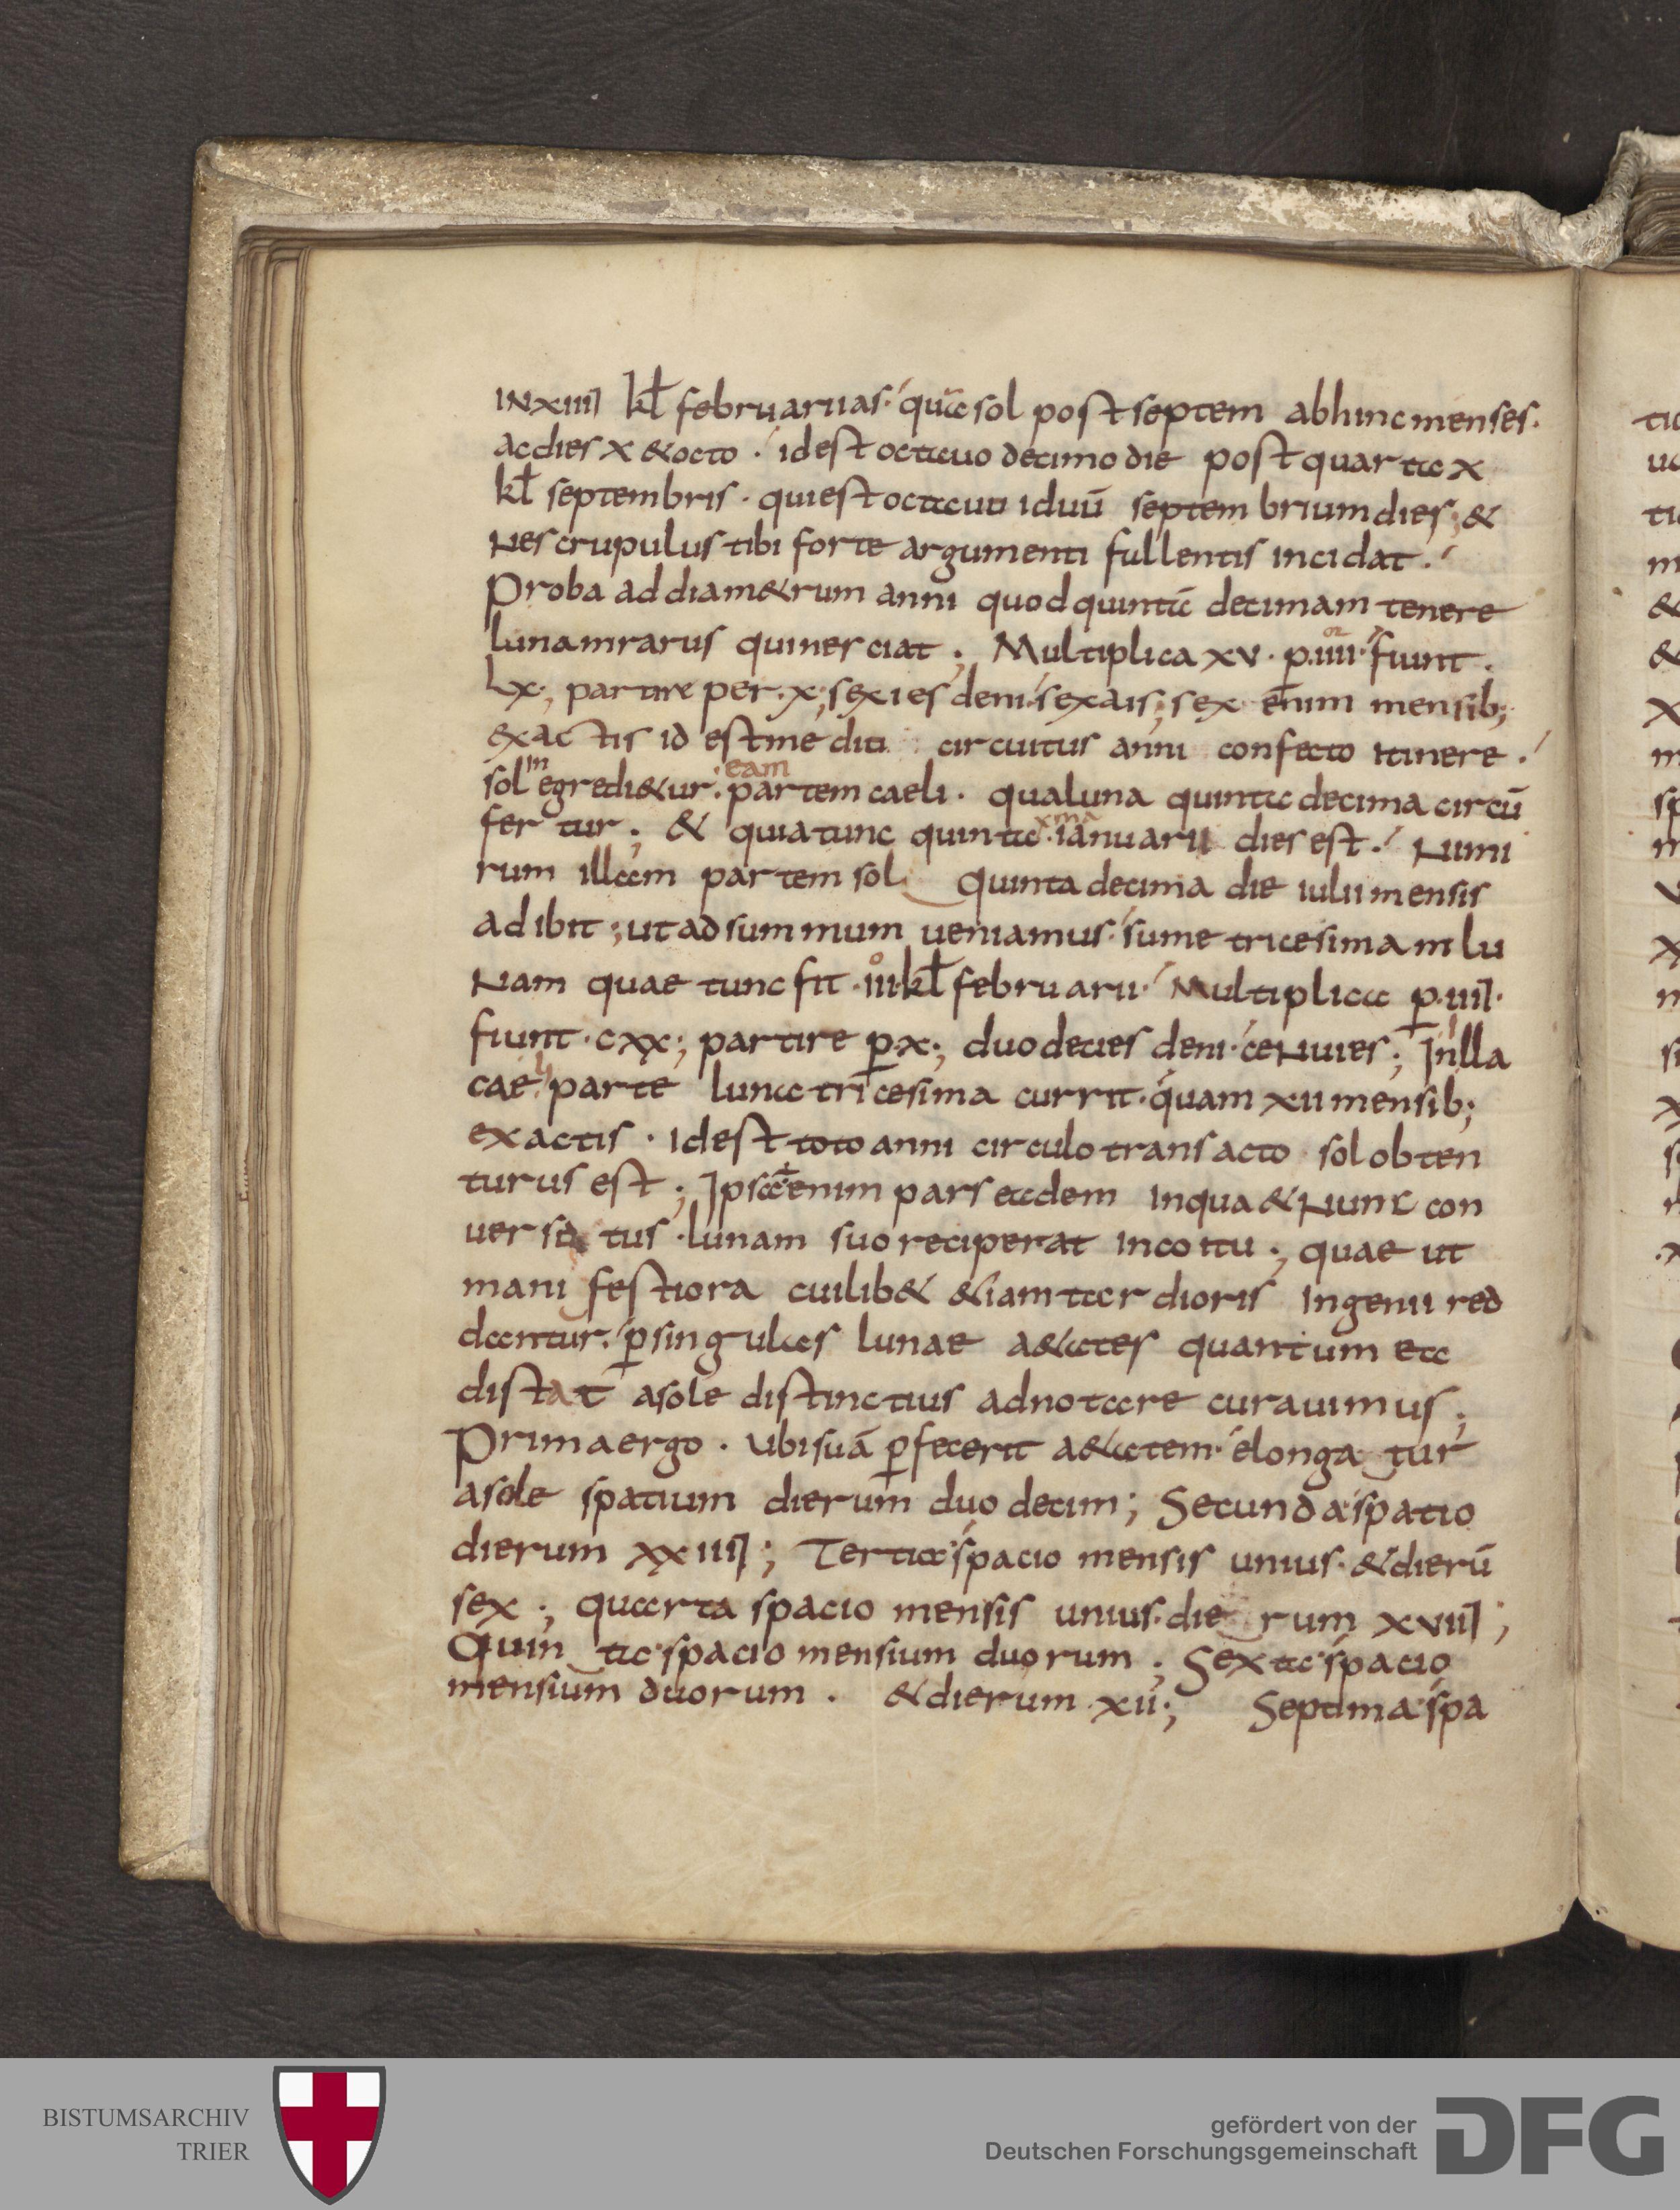 INXIIII kł februarias· quã sol post septem abhinc menses·
ac dies X & octo · id est octauo decimo die post quarta X
kł septembris · qui est octauu iduū septembrium dies; &
ne scrupulus tibi forte argumenti fallentis incidat ·
Proba ad diam&rum anni quod quintā decimam tenere
lunam rarus qui nesciat ; Multiplica XV · p. IIII · fiunt ·
LX; partire per · X; sexies deni sexais; sex enim mensib;
exactis id est medii circuitus anni confecto itinere ·
sol ingredi&ur · eam partem caeli · qua luna quinta decima circū
fertur ; & quia tunc quinta xma ianuarii dies est · Nimi
rum illam partem sol quinta decima die iulii mensis
adibit ; ut ad summum ueniamus · sume tricesimam lu
nam quae tunc fit · III · kł februarii · Multiplica p. IIII ·
fiunt · CXX; partire p. X; duodecies deni · ; In illa
caeli parte luna tricesima currit · quam XII mensib;
exactis · id est toto anni circulo transacto sol obten
turus est ; Ipsa ÷ enim pars eadem in qua & nunc con
uersatus · lunam suo reciperat in coitu ; quae ut
manifestiora cuilib& &iam tardioris ingenii red
dantur · p singulas lunae a&ates quantum ea
distat a sole distinctius adnotare curauimus ;
Prima ergo · ubi suā pfecerit a&atem · elongatur
a sole spatium dierum duodecim ; Secunda spatio
dierum XXIIII ; Tertia spacio mensis unius · & dierū
sex ; quarta spacio mensis unius · dierum XVIII ;
Quinta spacio mensium duorum ; Sexta spacio
mensium duorum · & dierum XII ; Septima spa
BISTUMSARCHIV
TRIER
gefördert von der
Deutschen Forschungsgemeinschaft
DFG